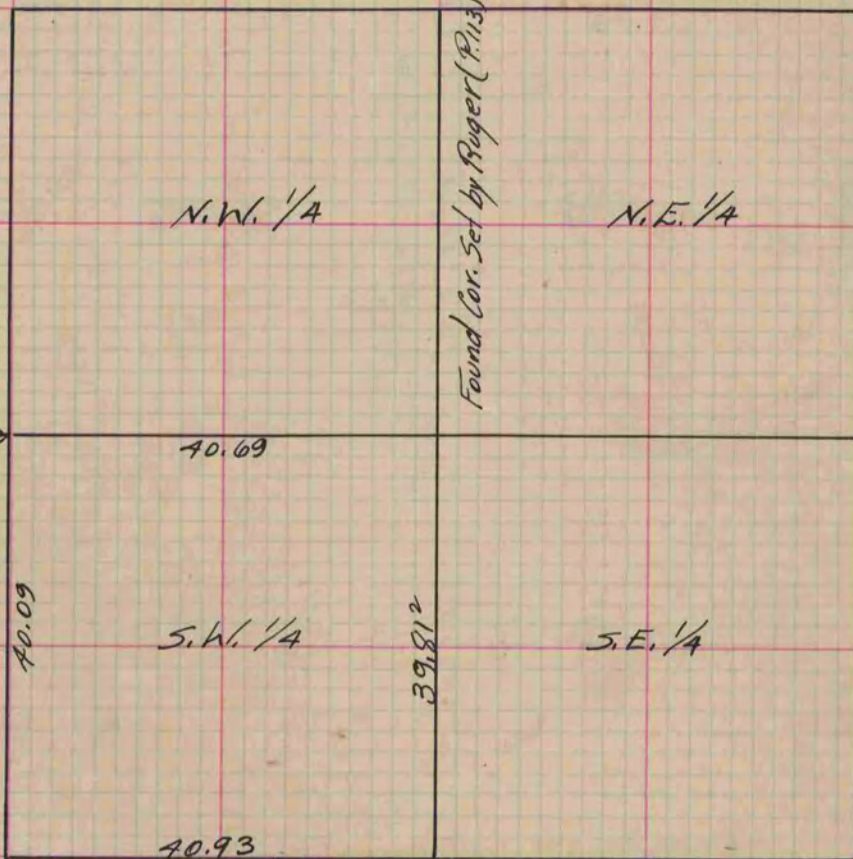 N.W. 1/4
Found Cor. Set by Ruger (P.113)
N.E. 1/4
40.69
40.09
S.W. 1/4
39.81²
S.E. 1/4
40.93